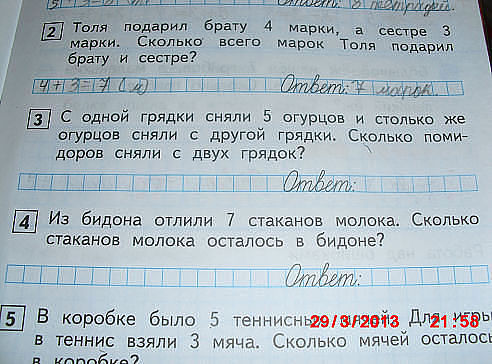 Ответ: 8 тетрадей.
2 Толя подарил брату 4 марки, а сестре 3
марки. Сколько всего марок Толя подарил
брату и сестре?
4+3=7 (м) Ответ: 7 марок.
3 С одной грядки сняли 5 огурцов и столько же
огурцов сняли с другой грядки. Сколько поми-
доров сняли с двух грядок?
Ответ:
4 Из бидона отлили 7 стаканов молока. Сколько
стаканов молока осталось в бидоне?
Ответ:
5 В коробке было 5 теннисных мячей. Для игры
в теннис взяли 3 мяча. Сколько мячей осталось
в коробке?
29/3/2013 21:58